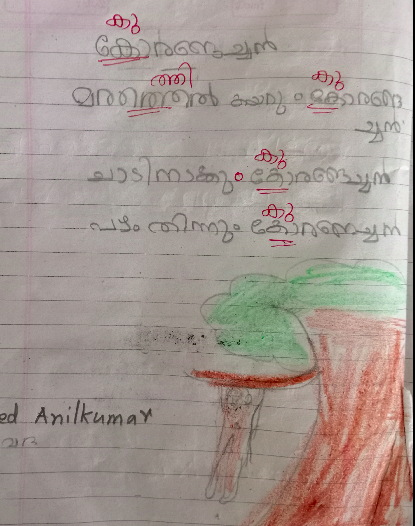 കു
കോരണ്ടെച്ചൻ
ത്തി കു
മരത്തിൽ കയറും കോരണ്ടെ
ച്ചൻ
കു
ചാടിനടക്കും കോരണ്ടെച്ചൻ
കു
പഴം തിന്നും കോരണ്ടെച്ചൻ
ed Anilkumar